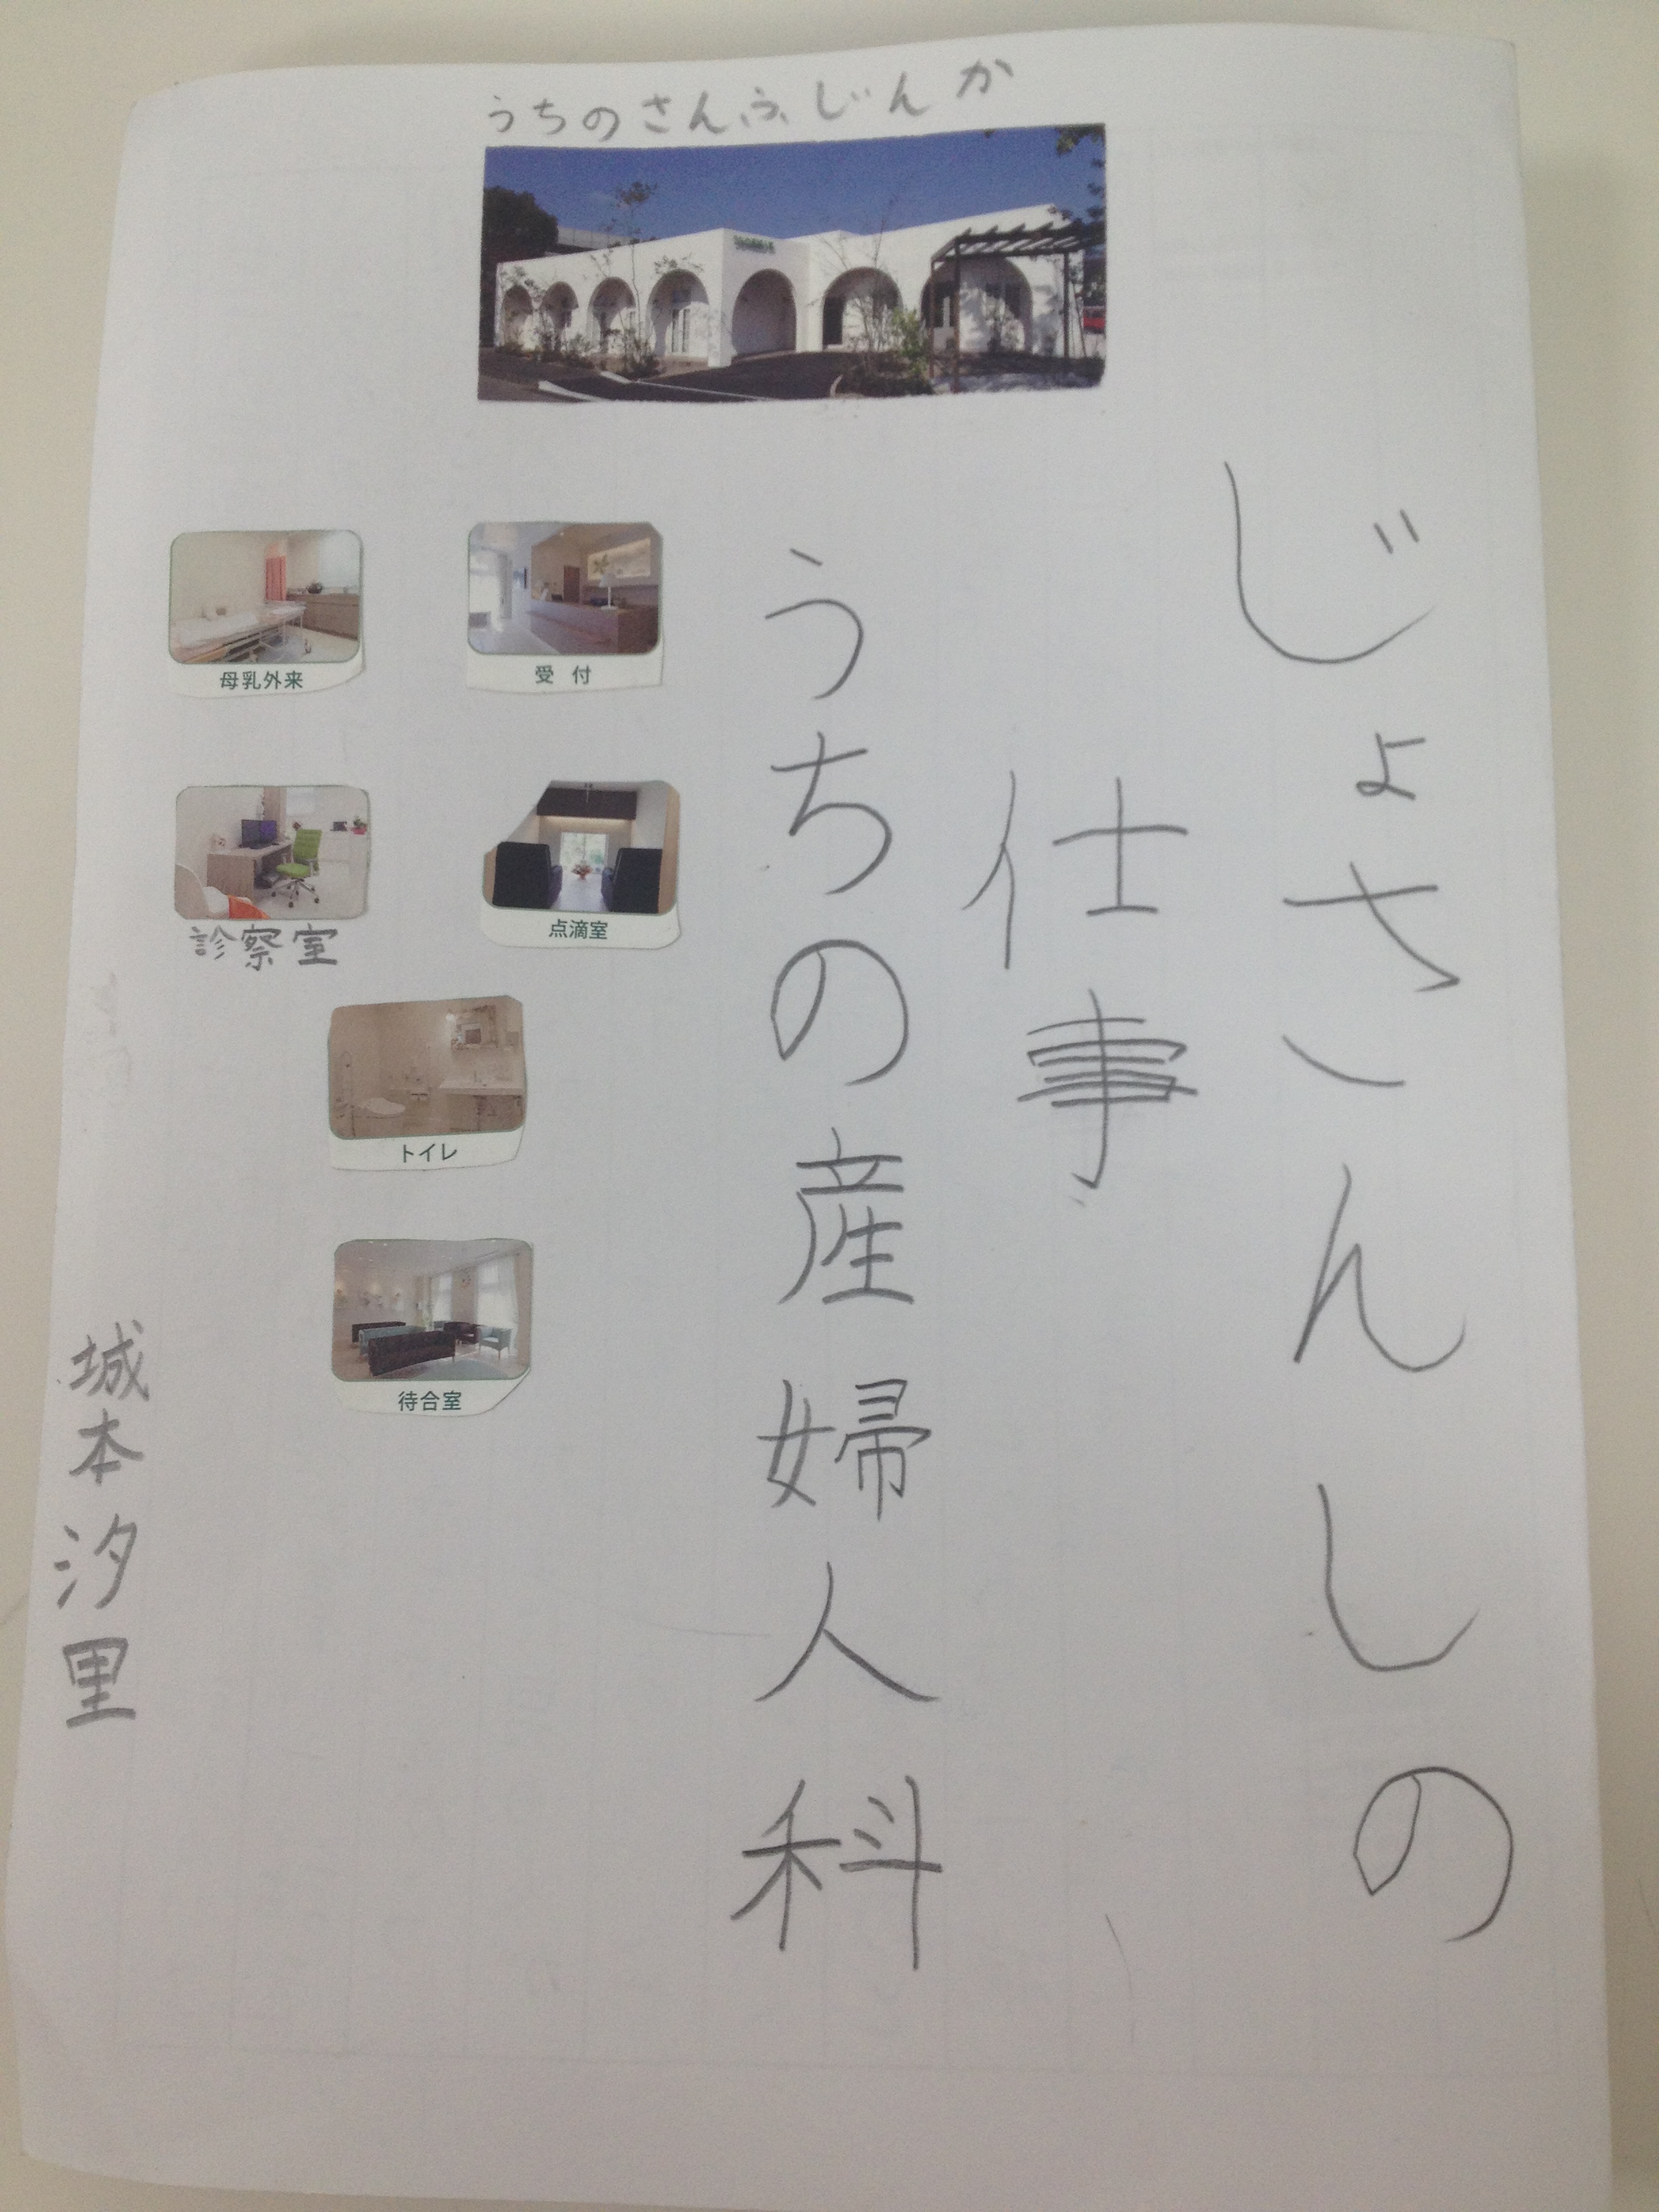 うちのさんふじんか
じょさんしの
仕事
うちの産婦人科
受付
母乳外来
点滴室
診察室
トイレ
待合室
城本汐里